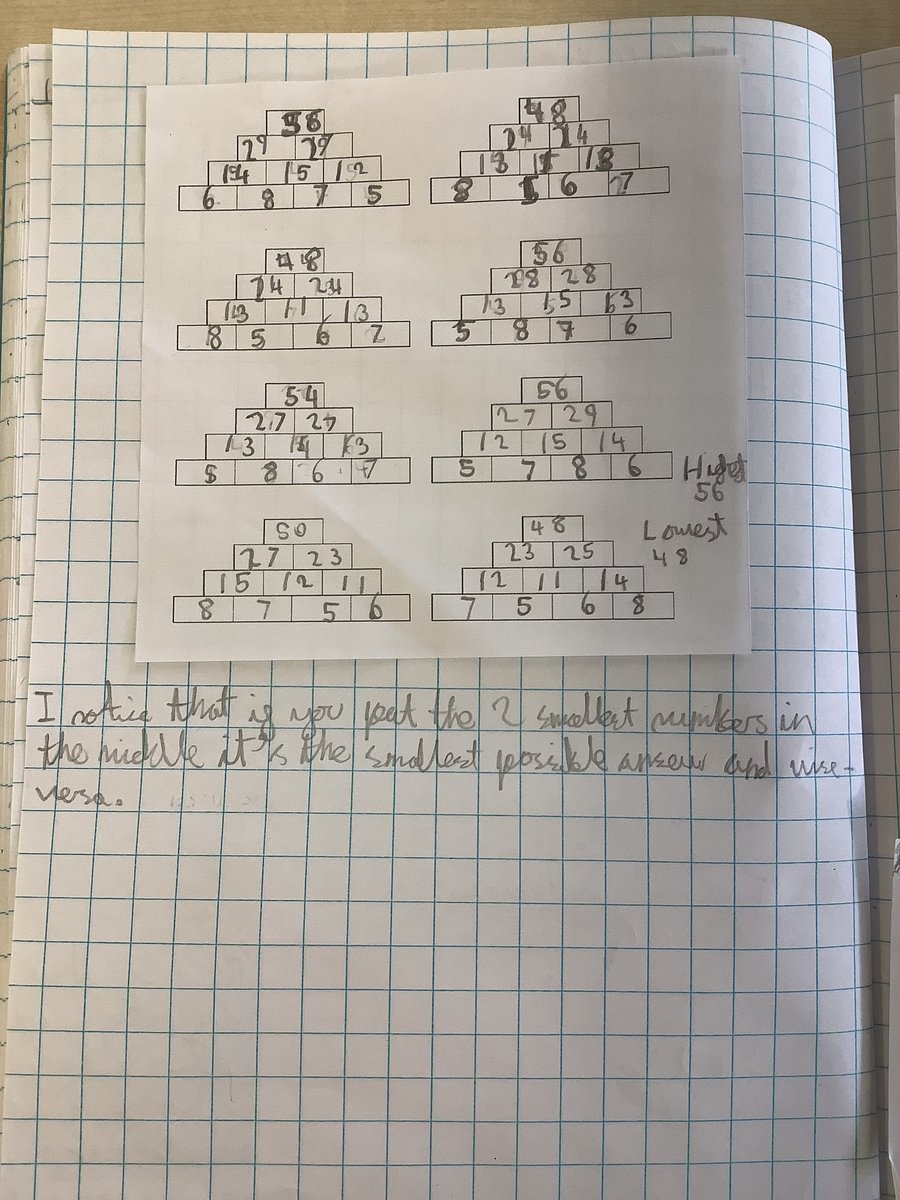 56
29 27
14 15 12
6 8 7 5
48
24 24
13 11 13
8 5 6 7
48
24 24
13 11 13
8 5 6 7
56
28 28
13 15 13
5 8 7 6
54
27 27
13 14 13
5 8 6 7
56
27 29
12 15 14
5 7 8 6
Highest
56
50
27 23
15 12 11
8 7 5 6
48
23 25
12 11 14
7 5 6 8
Lowest
48
I notice that if you put the 2 smallest numbers in
the middle it's the smallest possible answer and vise-
versa.